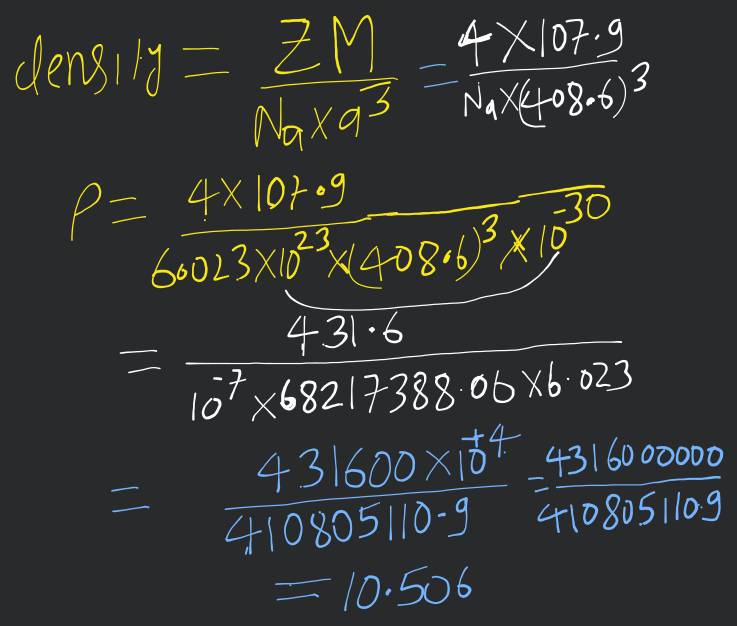 density = ZM / Na×a³ = 4×107.9 / Na×(408.6)³
ρ = 4×107.9 / 6.023×10²³×(408.6)³×10⁻³⁰
= 431.6 / 10⁻⁷×68217388.06×6.023
= 431600×10⁺⁴ / 410805110.9 = 4316000000 / 410805110.9
= 10.506